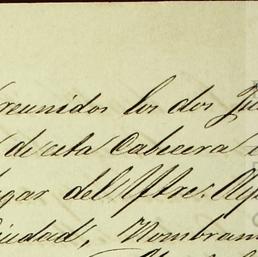 reunidos los dos Ju
de esta Cabecera
gar del Yltre. Ay
iudad, Nombram